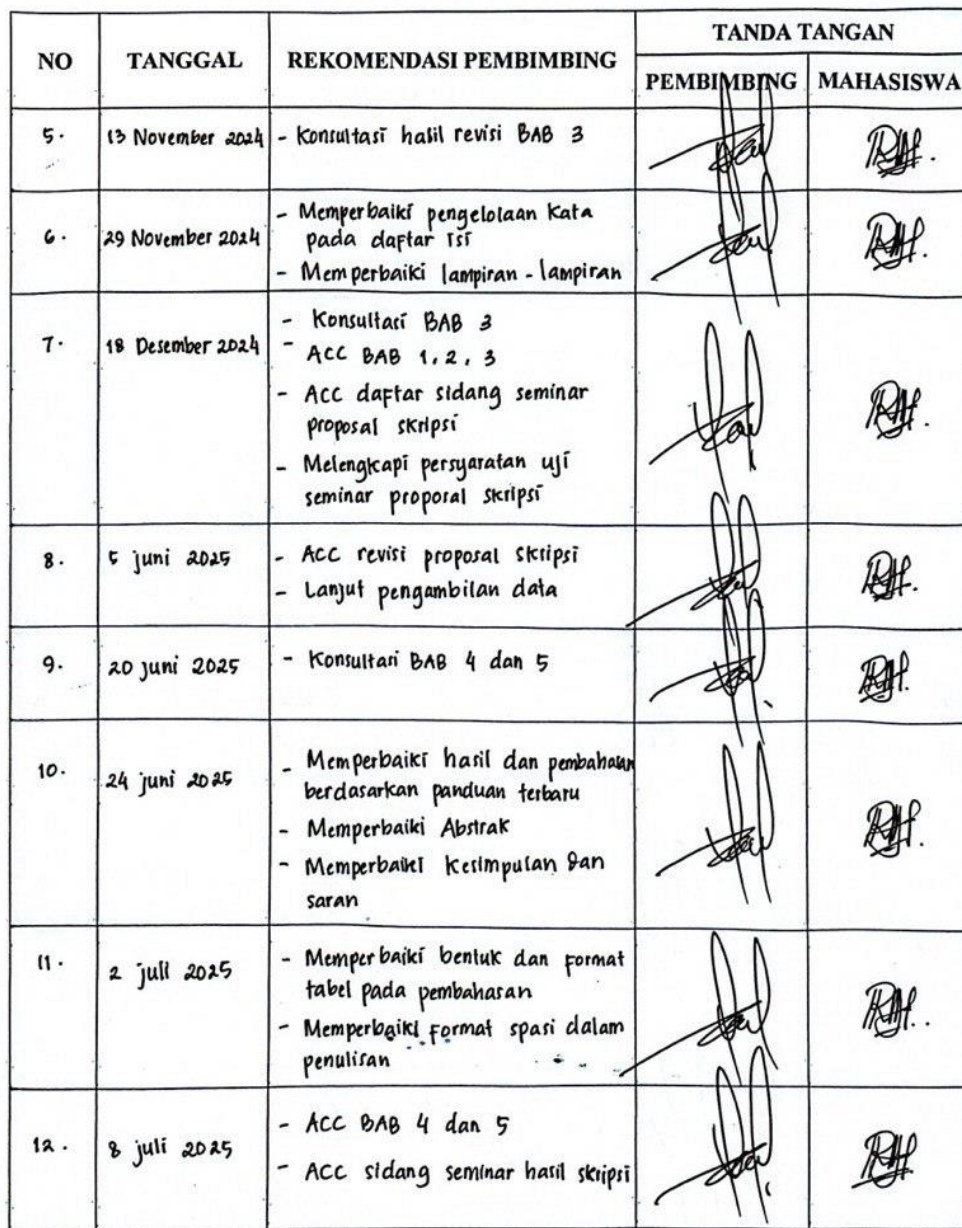 NO TANGGAL REKOMENDASI PEMBIMBING TANDA TANGAN
PEMBIMBING MAHASISWA
5. 13 November 2024 - Konsultasi hasil revisi BAB 3
6. 29 November 2024 - Memperbaiki pengelolaan kata
pada daftar isi
- Memperbaiki lampiran - lampiran
7. 18 Desember 2024 - Konsultasi BAB 3
- ACC BAB 1, 2, 3
- ACC daftar sidang seminar
proposal skripsi
- Melengkapi persyaratan uji
seminar proposal skripsi
8. 5 juni 2025 - ACC revisi proposal skripsi
- Lanjut pengambilan data
9. 20 juni 2025 - Konsultasi BAB 4 dan 5
10. 24 juni 2025 - Memperbaiki hasil dan pembahasan
berdasarkan panduan terbaru
- Memperbaiki Abstrak
- Memperbaiki Kesimpulan dan
saran
11. 2 juli 2025 - Memperbaiki bentuk dan format
tabel pada pembahasan
- Memperbaiki format spasi dalam
penulisan
12. 8 juli 2025 - ACC BAB 4 dan 5
- ACC sidang seminar hasil skripsi